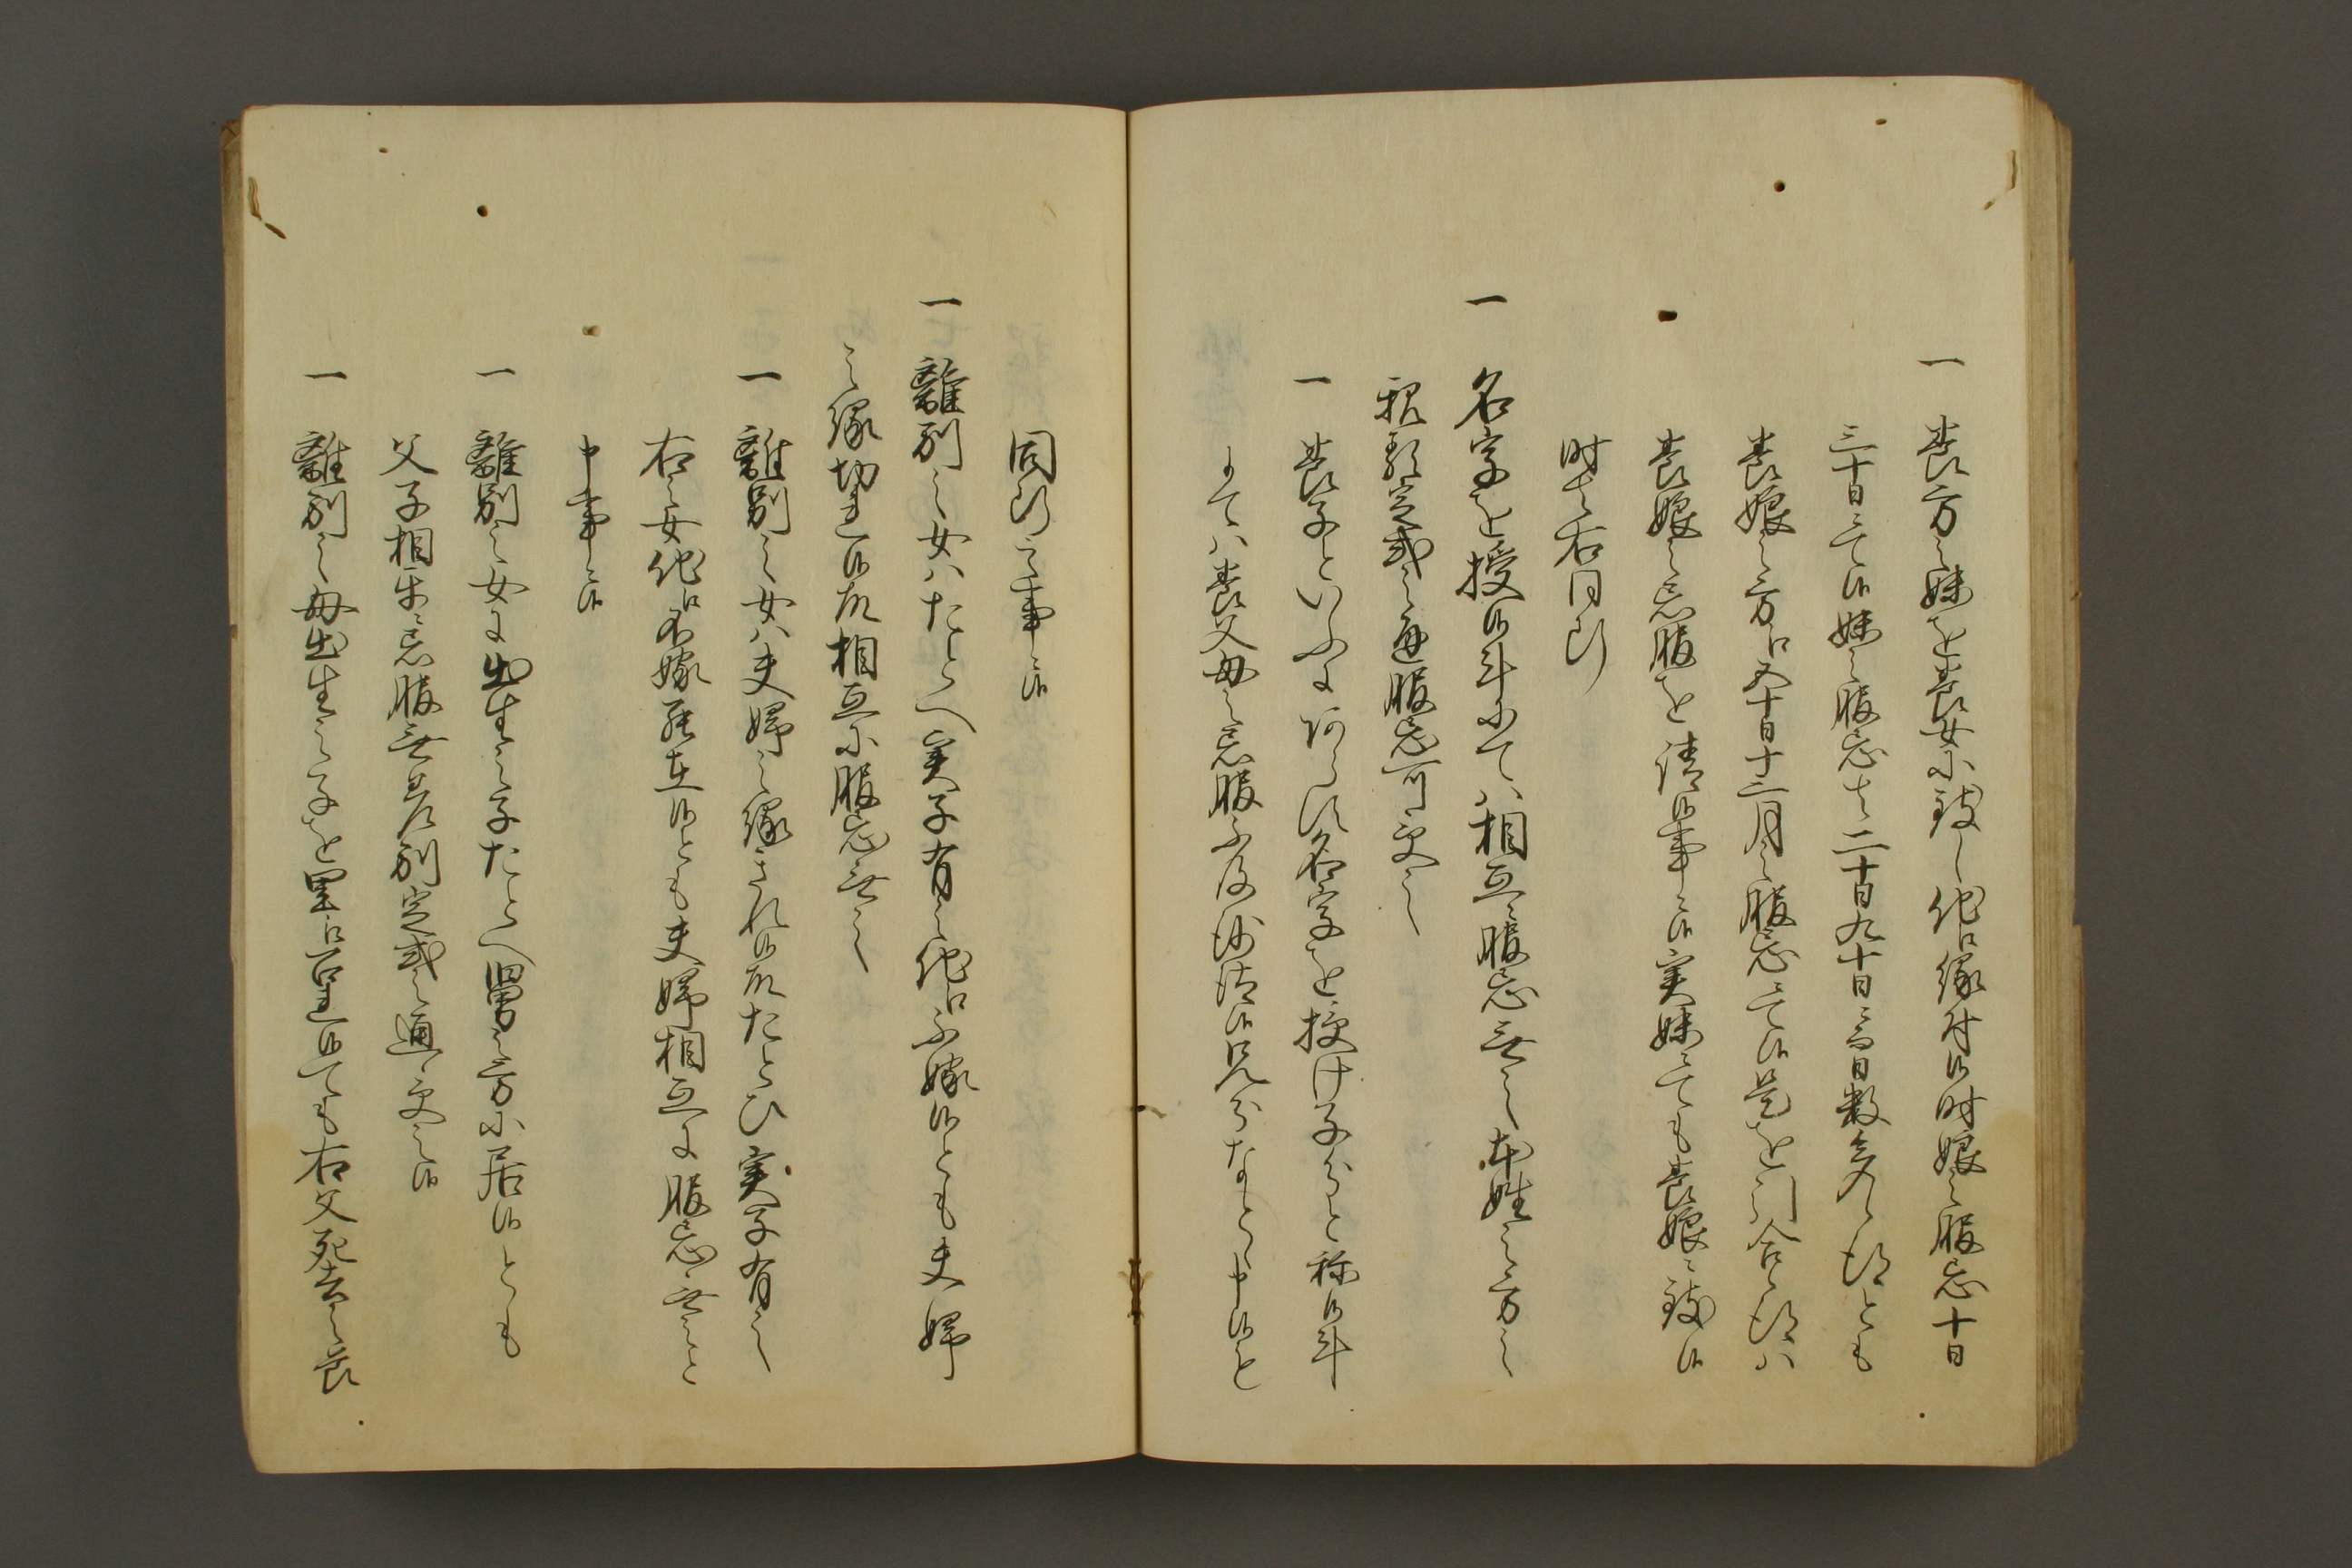 一 養方之妹を養女ニ致し他江縁付候時娘之服忌十日
三十日ニ而候妹之服忌者二十日九十日ニ而日数多く候とも
養娘之方江五十日十三月之服忌ニ而候是を引合候ハ
養娘之忌服を請候事ニ候実妹ニ而も養娘ニ致候
時者右同断
一 名字を授候斗ニ而ハ相互ニ服忌無之本姓之方之
親類定式之通服忌可受之
一 養子といふニあらす名字を授け子分と称候斗
ニてハ養父母之忌服不及沙汰候兄分なとゝ申候を
同断之事ニ候
一 離別之女ハたとへ実子有之他江不嫁候とも夫婦
之縁切レ候故相互ニ服忌無之
一 離別之女ハ夫婦之縁きれ候故たとひ実子有之
右之女他江不嫁罷在候とも夫婦相互ニ服忌無之と
申事ニ候
一 離別之女ニ出生之子たとへ舅之方ニ居候とも
父子相互ニ忌服無差別定式之通受之候
一 離別之母出生之子を里江召連候ても右父死去之節